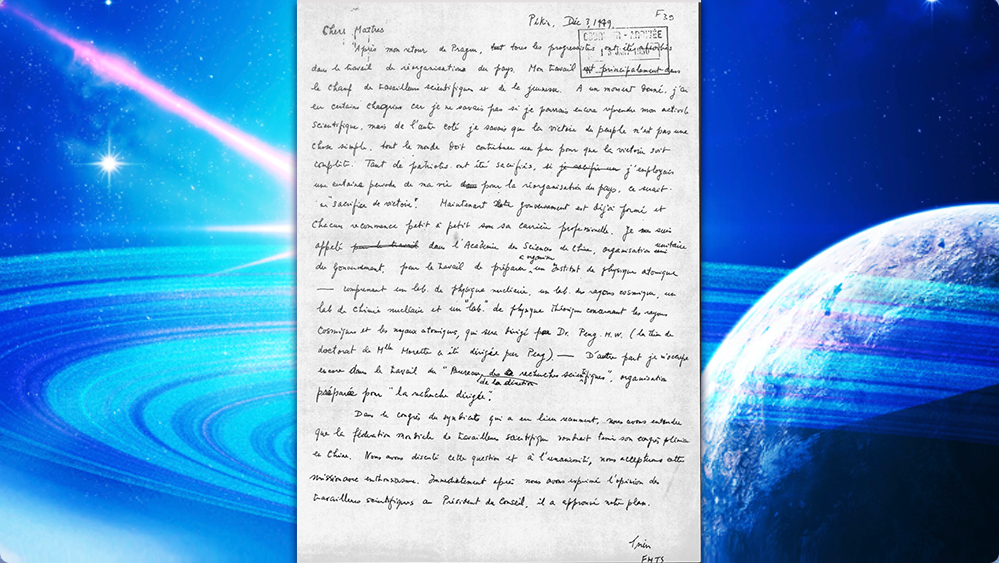 F35
Pékin, Déc 3, 1949.
Chers Maîtres
COURRIER - ARRIVÉE
Après mon retour de Prague, tout tous les progressistes ont été
dans le travail de réorganisations du pays. Mon travail est principalement dans
le champ de travailleurs scientifiques et de la jeunesse. A un moment donné, j'ai
eu certains chagrins car je ne savais pas si je pourrais encore reprendre mon activité
scientifique, mais de l'autre coté je savais que la victoire du peuple n'est pas une
chose simple, tout le monde doit contribuer un peu pour que la victoire soit
complète. Tant de patriotes ont été sacrifiés, si j'employais
une certaine periode de ma vie pour la réorganisation du pays, ce serait
un "sacrifice de victoire". Maintenant Notre gouvernement est déjà formé et
chacun recommence petit à petit sa carrière professionnelle. Je suis
appelé dans l'Académie des Sciences de Chine, organisation unitaire
du Gouvernement, pour le travail de préparer, un Institut de physique atomique
à organiser
— comprenant un lab. de physique nucléaire, un lab. de rayons cosmiques, un
lab de chimie nucléaire et un "lab." de physique théorique concernant les rayons
cosmiques et les noyaux atomiques, qui sera dirigé par Dr. Peng H.W. (la thèse de
doctorat de Mlle Morette a été dirigée par Peng) — D'autre part je m'occupe
encore dans le travail du "Bureau des recherches scientifiques", organisation
de la direction
préparée pour "la recherche dirigée".
Dans le congrès du syndicats qui a eu lieu récemment, nous avons entendu
que la fédération mondiale de travailleurs scientifiques voudrait tenir son congrès
en Chine. Nous avons discuté cette question et à l'unanimité, nous accepterons cette
mission avec enthousiasme. Immédiatement après nous avons exprimé l'opinion des
travailleurs scientifiques au Président du Conseil, il a approuvé notre plan.
Tsien
FMTS